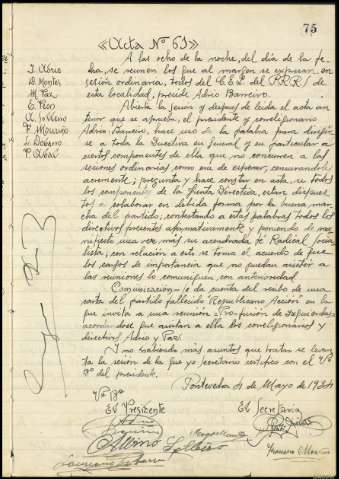 75
«Acta Nº 63»
A las ocho de la noche, del día de la fe-
cha, se reunen los que al margen se expresan en
sesión ordinaria, todos del C.E.L. del P.R.R.S de
esta localidad, preside Adrio Barreiro.
D. Montes
M. Paz
E. Peon
P. Mourizo
L. Dobarro
Abierta la sesion y despues de leida el acta an-
terior que se aprueba, el presidente y correligionario
Adrio Barreiro, hace uso de la palabra para dirigir-
se a toda la Directiva en general y en particular a
ciertos componentes de ella que no concurren a las
sesiones ordinarias como era de esperar, censurandoles
acremente; pregunta y hace constar en acta si todos
los componentes de la Junta Directiva, estan dispues-
tos a colaborar en debida forma por la buena mar-
cha del partido; contestando a estas palabras todos los
directivos presentes afirmativamente y poniendo de ma-
nifiesto una vez más su acendrada fe Radical Socia-
lista; con relación a esto se toma el acuerdo de que
los cargos de importancia que no puedan asistir a
las reuniones lo comuniquen con anterioridad.
Comunicación= Se da cuenta del recibo de una
carta del partido fallecido "Republicano Acción" en la
que invita a una reunión Pro-fusión de Izquierdas
acordandose que asistan a ella los correligionarios y
directivos Adrio y Paz.
Y no habiendo más asuntos que tratar se levan-
ta la sesión de la que yo secretario certifico con el Vº
Bº del presidente.
Pontevedra 4 de Mayo de 1934
Vº Bº
El Presidente
El Secretario
Albino